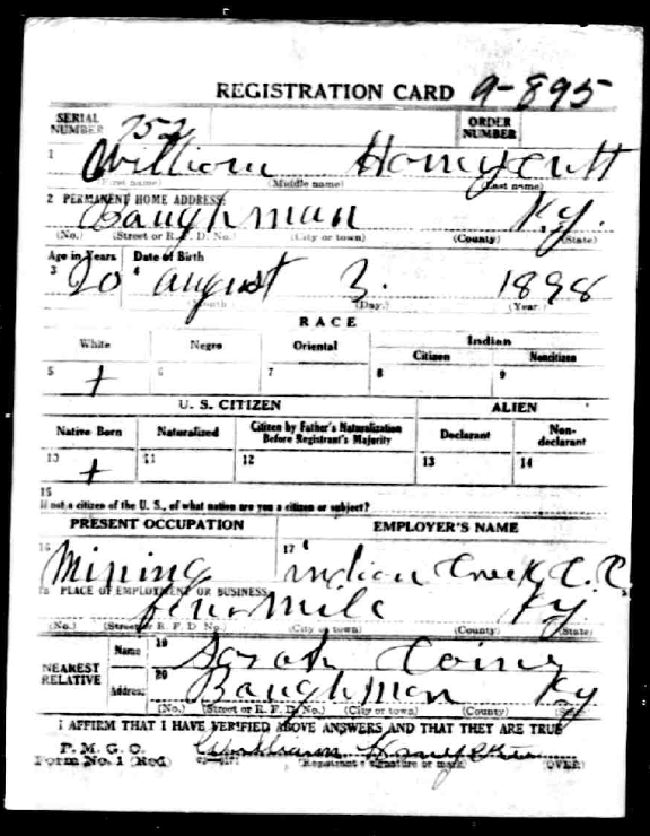 REGISTRATION CARD 9-895
SERIAL NUMBER 752 ORDER NUMBER
1 William Honeycutt
(First name) (Middle name) (Last name)
2 PERMANENT HOME ADDRESS:
Baughman Ky.
(No.) (Street or R. F. D. No.) (City or town) (County) (State)
Age in Years Date of Birth
3 20 4 August 3. 1898
(Month) (Day.) (Year.)
RACE
White Negro Oriental Indian
Citizen Noncitizen
5 + 6 7 8 9
U. S. CITIZEN ALIEN
Native Born Naturalized Citizen by Father's Naturalization Before Registrant's Majority Declarant Non-declarant
10 + 11 12 13 14
15
If not a citizen of the U. S., of what nation are you a citizen or subject?
PRESENT OCCUPATION EMPLOYER'S NAME
16 Mining 17 Indian Creek C. C.
18 PLACE OF EMPLOYMENT OR BUSINESS:
Mile Ky
(No.) (Street or R. F. D. No.) (City or town) (County) (State)
NEAREST RELATIVE
Name 19 Sarah
Address 20 Baughman Ky
(No.) (Street or R. F. D. No.) (City or town) (County)
I AFFIRM THAT I HAVE VERIFIED ABOVE ANSWERS AND THAT THEY ARE TRUE
P. M. G. O.
Form No. 1 (Red) (Registrant's signature or mark) (OVER)